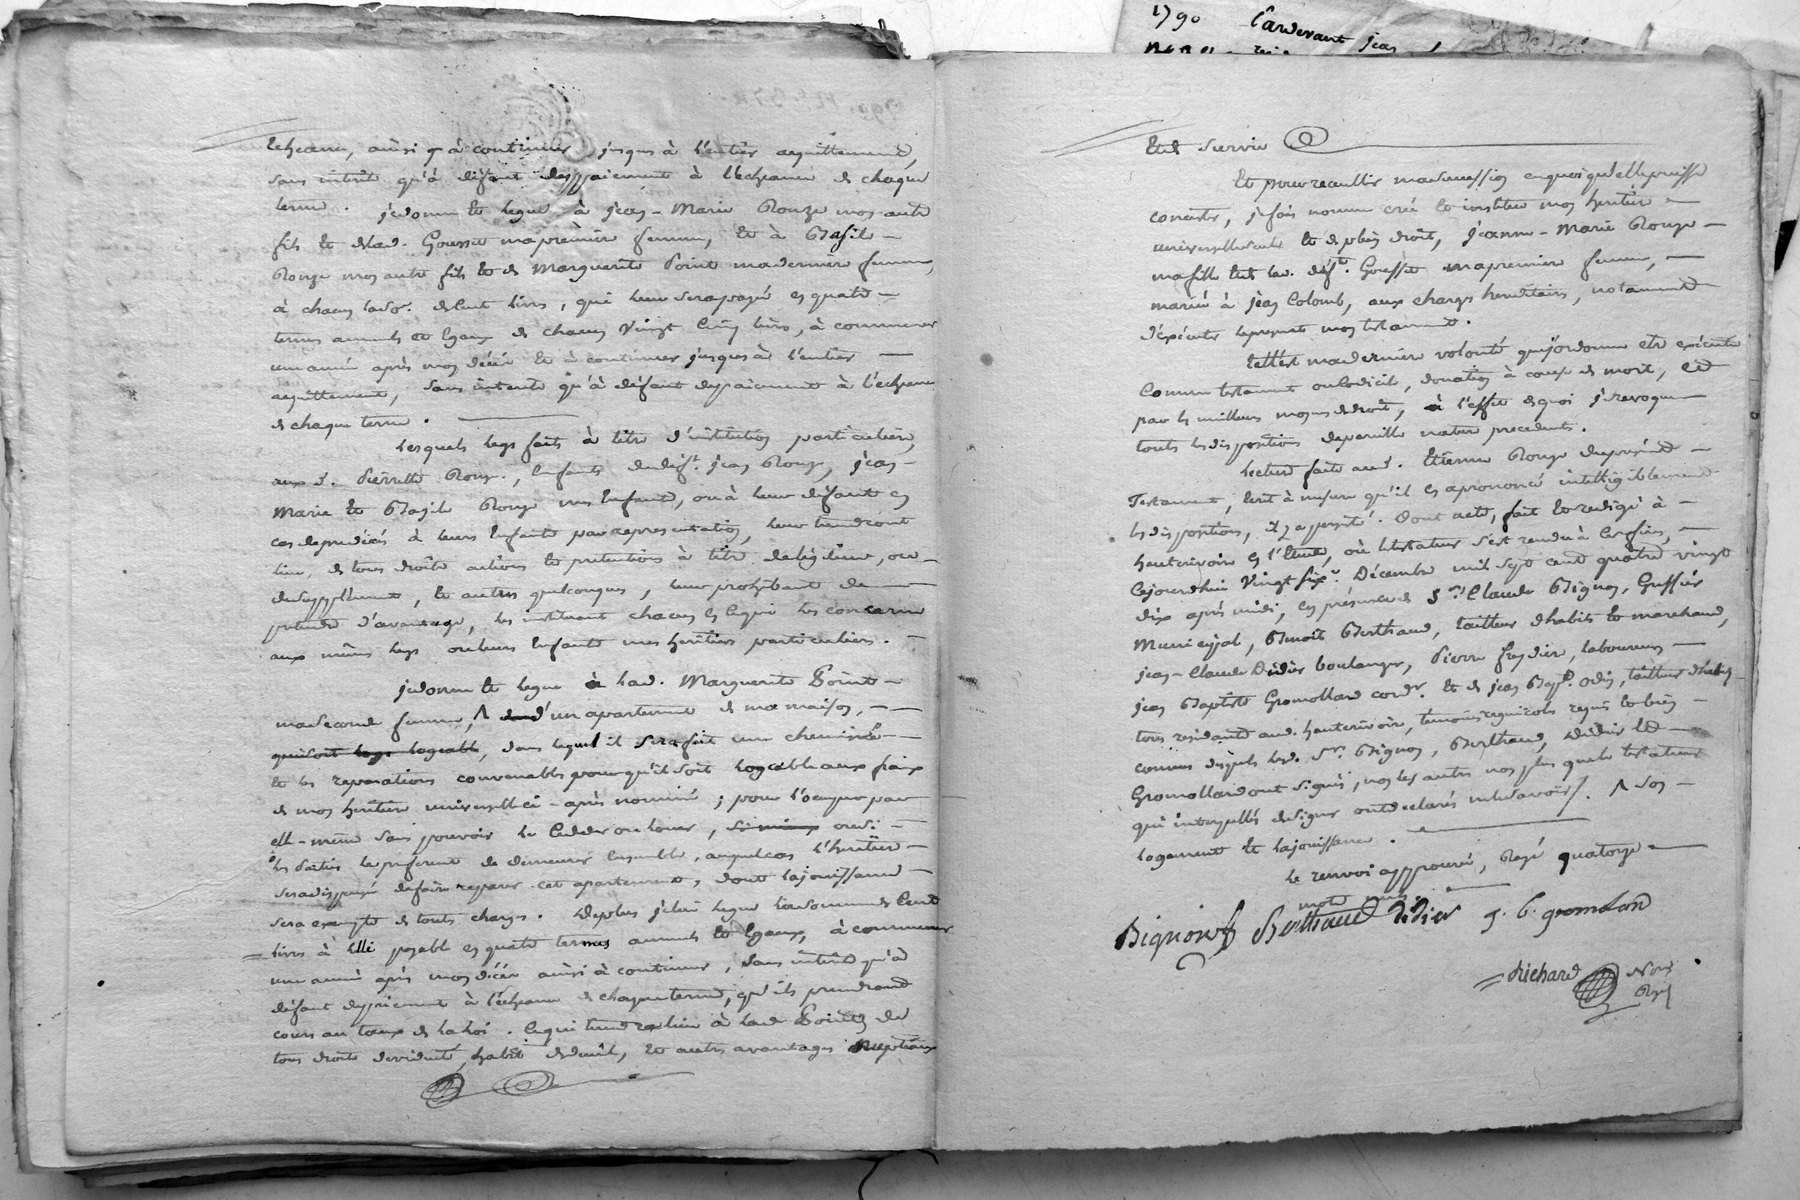 1790 Cardevant jean
échéance, ainsi q. à continuer jusques à l'entier acquittement,
sans intérêts qu'à défaut de paiement à l'échéance de chaque
terme. je donne et legue à jean-Marie Rouze mon autre
fils et de lad. Gousset ma première femme, et à Basile
Rouze mon autre fils et de Marguerite Point ma dernière femme,
à chacun la so. de cent livres, qui leur sera payé en quatre
termes annuels et egaux de chacun vingt cinq livres, à commencer
une année après mon décès et à continuer jusques à l'entier
acquittement, sans interets qu'à défaut de paiement à l'echeance
de chaque terme.
Lesquels legs faits à titre d'institution particulière,
aux d. Pierrette Rouze, enfants dud. jean Rouze, jean-
Marie et Basile Rouze mes enfants, ou à leur défaut en
cas de prédécès à leurs enfants par représentation, leur tiendront
lieu, de tous droits actions et pretentions à titre de légitime, ou
de supplément, et autres quelconques, leur prohibant de
pretendre d'avantage, les instituant chacun en ce qui les concerne
aux mêmes legs ou leurs enfants mes heritiers particuliers.
je donne et legue à lad. Marguerite Point
ma seconde femme, Λ d'un apartement de ma maison,
qui soit logeable, dans lequel il sera fait une cheminée
et les reparations convenables pour qu'il soit logeable aux fraix
de mon heritière universelle ci-après nommée; pour l'occuper par
elle-même sans pouvoir le ceder ou louer, ou si
les parties le preferent de demeurer ensemble, auquel cas l'heritière
sera dispensée de faire reparer cet apartement, dont la jouissance
sera exempte de toutes charges. De plus je lui legue la somme de cent
livres à elle payable en quatre termes annuels et egaux, à commencer
une année après mon décès ainsi à continuer, sans intérêt qu'à
défaut de paiement à l'échéance de chaque terme, qu'ils prendront
cours au taux de la loi. Ce qui tiendra lieu à lad. Point de
tous droits de viduité, habits de deuil, et autres avantages nuptiaux
et de survie
Et pour recueillir ma succession en quoi qu'elle puisse
consister, je fais nomme crée et institue mon heritière
universelle et de plein droit, jeanne-Marie Rouze
ma fille et de lad. déf.te Gousset ma première femme,
mariée à jean Colomb, aux charges hereditaires, notamment
d'exécuter le present mon testament.
Telle est ma dernière volonté que j'ordonne etre exécutée
comme testament ou codicil, donation à cause de mort, et
par les meilleurs moyens de droit, à l'effet de quoi je revoque
toutes les dispositions de pareille nature precedentes.
Lecture faite aud. Etienne Rouze du présent
Testament, ecrit à mesure qu'il en a prononcé intelligiblement
les dispositions, il y a persisté. Dont acte, fait et redigé à
hauterivoire en l'Etude, où le testateur s'est rendu à ces fins,
le jourd'hui vingt six.e Décembre mil sept cent quatre vingt
dix après midi, en présence de S.r Claude Bignon, Greffier
Municipal, Benoit Berthaud, tailleur d'habits et marchand,
jean-Claude Didier boulanger, Pierre , laboureur
jean Baptiste Gromollard cord.r et de jean Bapt.e Odin, tailleur d'habits
tous residants aud. hauterivoire, temoins requis et bien
connus desquels led. S.r Bignon, Berthaud, Didier et
Gromollard ont signés, non les autres non plus que le testateur
qui interpellés de signer ont declarés ne le savoir /. Λ son
logement et la jouissance.
Le renvoi approuvé, Rayé quatorze
mots nuls
Bignon gff Berthaud Didier j. b. gromolard
Richard Not.
Roy.